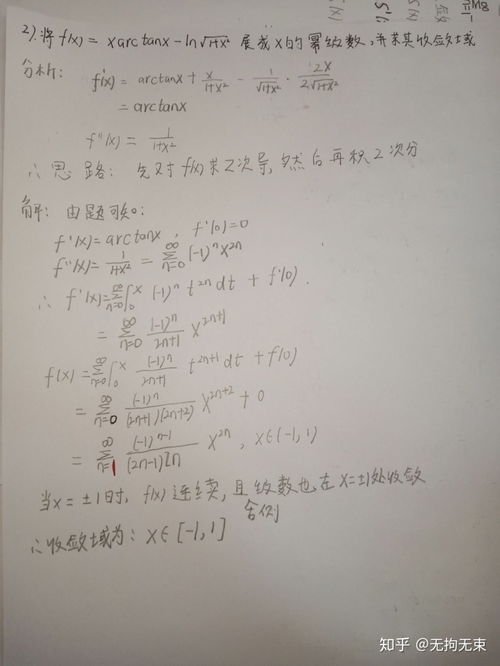 2).将 f(x) = x arctanx - ln√(1+x²) 展成 x 的幂级数,并求其收敛域
分析: f'(x) = arctanx + x/(1+x²) - 1/√(1+x²) · 2x/(2√(1+x²))
= arctanx
f''(x) = 1/(1+x²)
∴ 思路: 先对 f(x) 求2次导,然后再积2次分
解: 由题可知:
f'(x) = arctanx , f'(0)=0
f''(x) = 1/(1+x²) = ∑_{n=0}^{∞} (-1)^n x^{2n}
∴ f'(x) = ∑_{n=0}^{∞} ∫_0^x (-1)^n t^{2n} dt + f'(0).
= ∑_{n=0}^{∞} (-1)^n/(2n+1) x^{2n+1}
f(x) = ∑_{n=0}^{∞} ∫_0^x (-1)^n/(2n+1) t^{2n+1} dt + f(0)
= ∑_{n=0}^{∞} (-1)^n/((2n+1)(2n+2)) x^{2n+2} + 0
= ∑_{n=1}^{∞} (-1)^{n-1}/((2n-1)2n) x^{2n} , x∈(-1,1)
当x = ±1时, f(x) 连续, 且级数也在 x=±1处收敛
∴收敛域为: x∈[-1,1]
知乎 @无拘无束